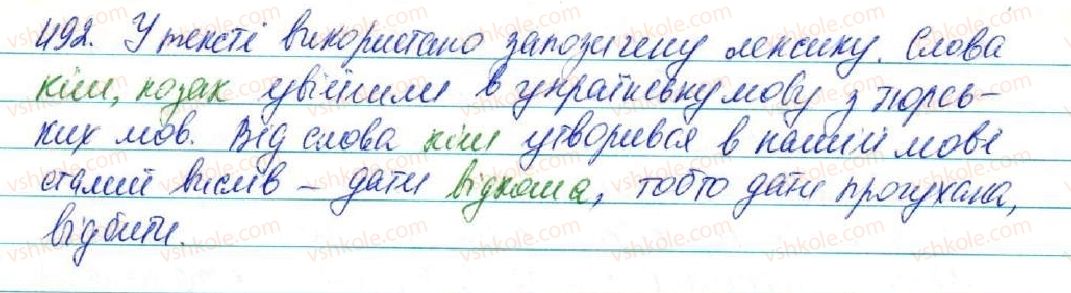 492. У тексті використано запозичену лексику. Слова
кіш, козак увійшли в українську мову з тюрсь-
ких мов. Від слова кіш утворився в нашій мові
сталий вислів – дати відкоша, тобто дати прочухана,
відбити.